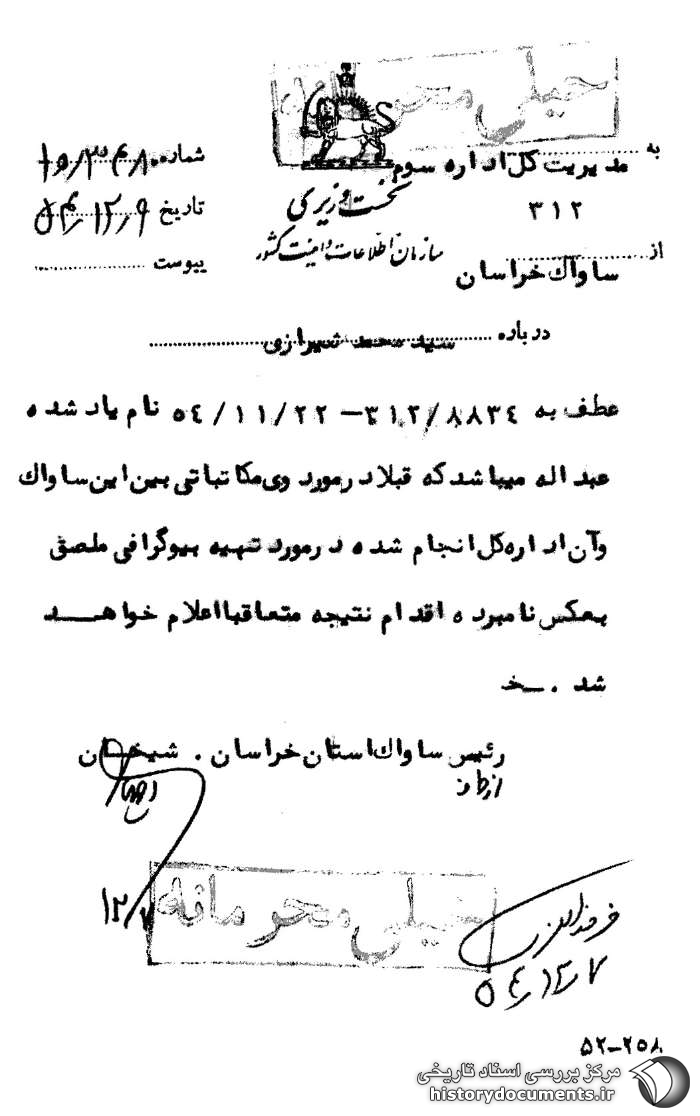 خیلی محرمانه
به مدیریت کل اداره سوم
۳۱۲
از ساواک خراسان
نخست وزیری
سازمان اطلاعات و امنیت کشور
شماره
تاریخ ۵۴/۱۲/۹
پیوست
درباره سید محمد شیرازی
عطف به ۳۱۲/۸۸۳٤ – ٥٤/۱۱/۲۲ نام یاد شده
عبداله میباشد که قبلا در مورد وی مکاتباتی بین این ساواک
و آن اداره کل انجام شده در مورد تهیه بیوگرافی ملصق
بعکس نامبرده اقدام نتیجه متعاقبا اعلام خواهد
شد . خ
رئیس ساواک استان خراسان . شیخان
از طرف
۱۲/۷
خیلی محرمانه
۵٤/۱۲/۷
۵۲-۲۵۸
مرکز بررسی اسناد تاریخی
historydocuments.ir